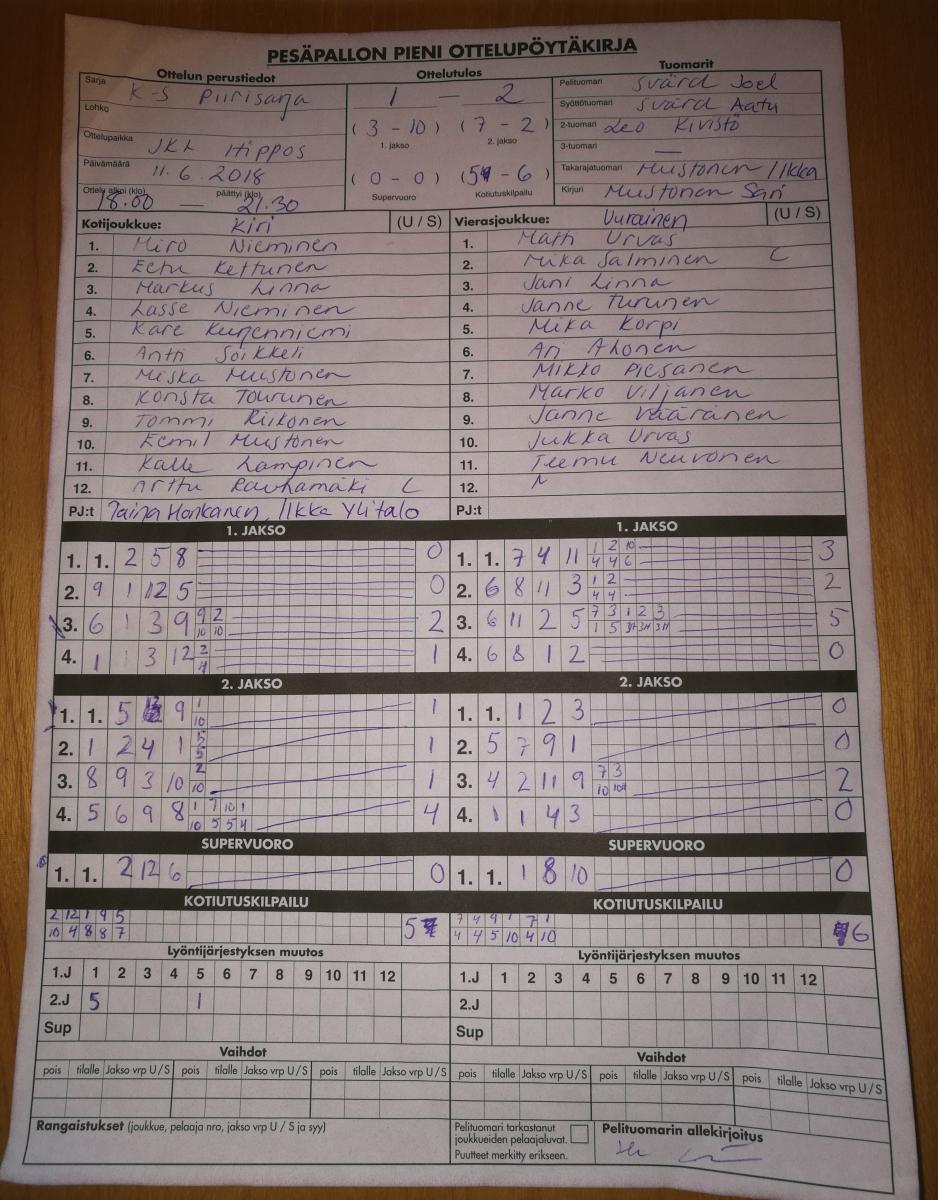 PESÄPALLON PIENI OTTELUPÖYTÄKIRJA
Ottelun perustiedot
Sarja K-S Piirisarja
Lohko
Ottelupaikka JKL Hippos
Päivämäärä 11.6.2018
Ottelu alkoi (klo) päättyi (klo)
18.00 — 21.30
Ottelutulos
1 — 2
(3 - 10) (7 - 2)
1. jakso 2. jakso
(0 - 0) (5 - 6)
Supervuoro Kotiutuskilpailu
Tuomarit
Pelituomari Svärd Joel
Syöttötuomari Svärd Aatu
2-tuomari Leo Kivistö
3-tuomari —
Takarajatuomari Mustonen Ilkka
Kirjuri Mustonen Sari
Kotijoukkue: Kiri (U / S)
1. Miro Nieminen
2. Eetu Kettunen
3. Markus Linna
4. Lasse Nieminen
5. Kare
6. Antti Soikkeli
7. Miska Mustonen
8. Konsta Tourunen
9. Tommi Riikonen
10. Eemil Mustonen
11. Kalle Lampinen
12. Arttu Rauhamäki C
PJ:t Taina Honkanen, Ilkka Ylitalo
Vierasjoukkue: Uurainen (U / S)
1. Matti Urvas
2. Mika Salminen C
3. Jani Linna
4. Janne Turunen
5. Mika Korpi
6. Ari Ahonen
7. Mikko Piesanen
8. Marko Viljanen
9. Janne Vääränen
10. Jukka Urvas
11. Teemu Neuvonen
12.
PJ:t
1. JAKSO
1. 1. 2 5 8 0
2. 9 1 12 5 0
3. 6 1 3 9 9 2 2
10 10
4. 1 1 3 12 2 1
4
2. JAKSO
1. 1. 5 9 1 1
10
2. 1 2 4 1 5 1
5
3. 8 9 3 10 2 1
10
4. 5 6 9 8 1 7 10 1 4
10 5 5 4
SUPERVUORO
1. 1. 2 12 6 0
KOTIUTUSKILPAILU
2 12 1 9 5 5
10 4 8 8 7
1. JAKSO
1. 1. 7 4 11 1 2 10 3
4 4 6
2. 6 8 11 3 1 2 2
4 4
3. 6 11 2 5 7 3 1 2 3 5
1 5
4. 6 8 1 2 0
2. JAKSO
1. 1. 1 2 3 0
2. 5 7 9 1 0
3. 4 2 11 9 7 3 2
10
4. 1 1 4 3 0
SUPERVUORO
1. 1. 1 8 10 0
KOTIUTUSKILPAILU
7 4 9 1 7 1 6
4 4 5 10 4 10
Lyöntijärjestyksen muutos
1.J 1 2 3 4 5 6 7 8 9 10 11 12
2.J 5 1
Sup
Lyöntijärjestyksen muutos
1.J 1 2 3 4 5 6 7 8 9 10 11 12
2.J
Sup
Vaihdot
pois tilalle Jakso vrp U / S pois tilalle Jakso vrp U / S pois tilalle Jakso vrp U / S
Vaihdot
pois tilalle Jakso vrp U / S pois tilalle Jakso vrp U / S pois tilalle Jakso vrp U / S
Rangaistukset (joukkue, pelaaja nro, jakso vrp U / S ja syy)
Pelituomari tarkastanut
joukkueiden pelaajaluvat.
Puutteet merkitty erikseen.
Pelituomarin allekirjoitus